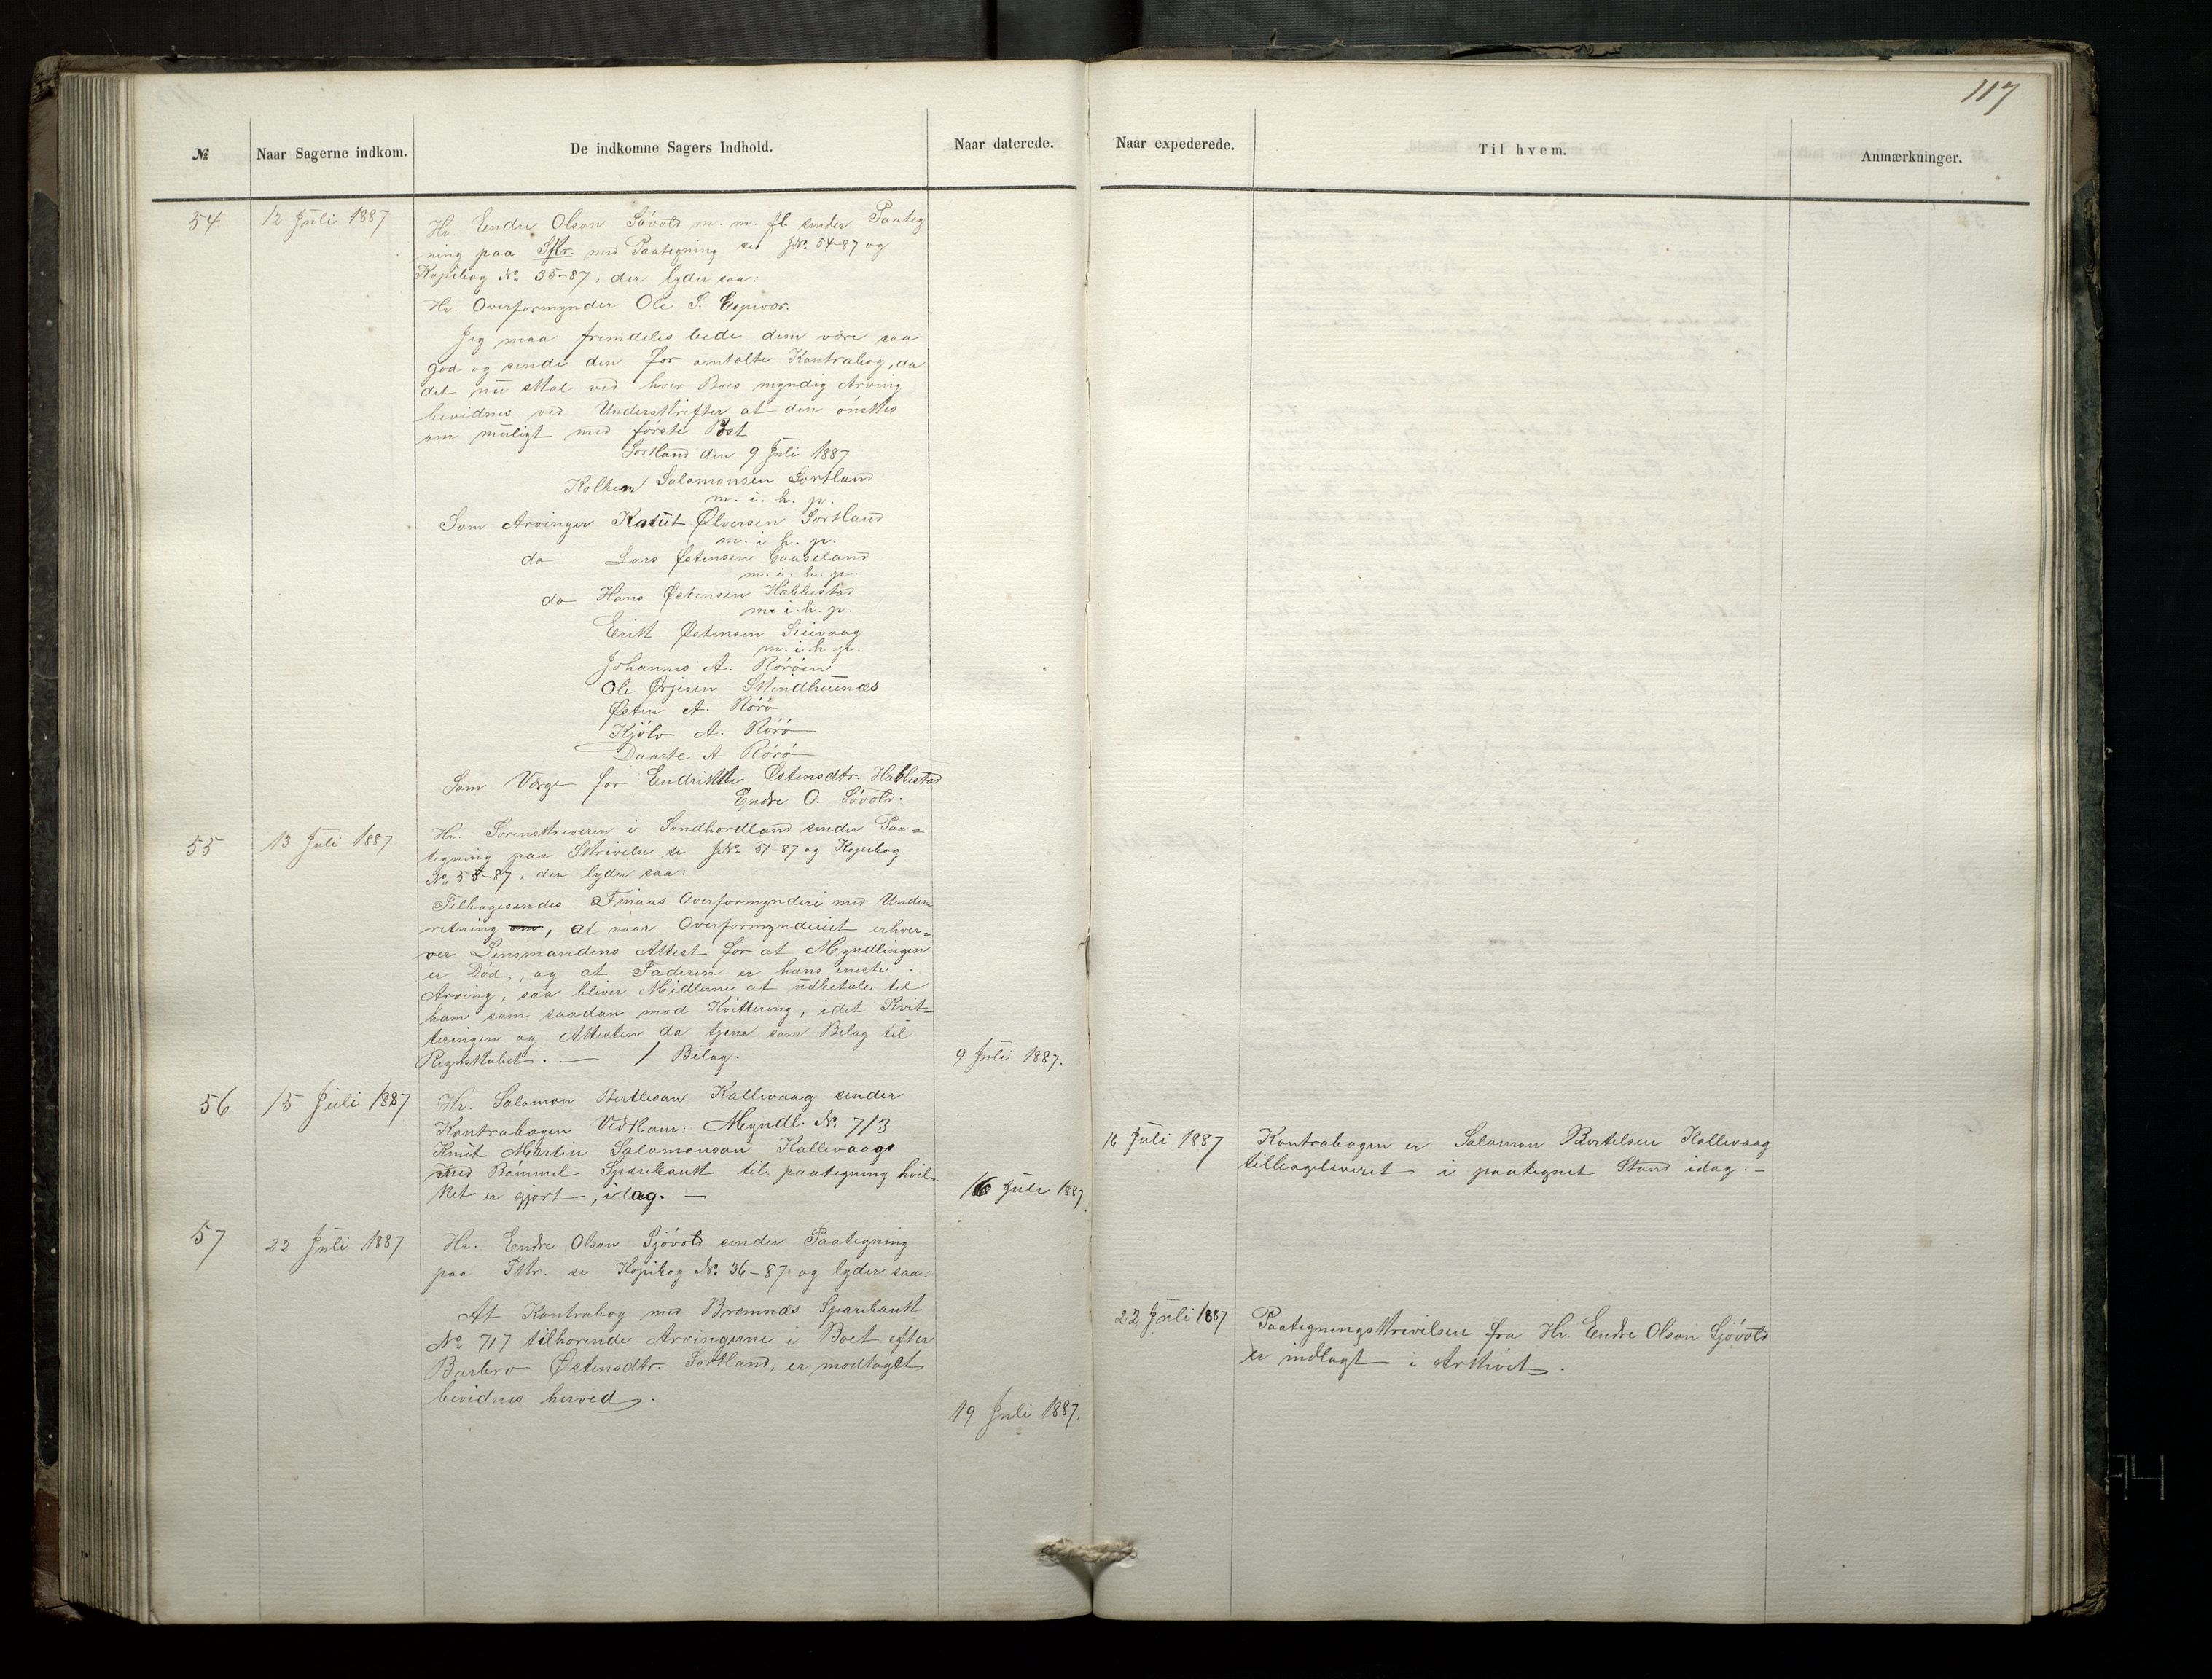 117
№
Naar Sagerne indkom.
De indkomne Sagers Indhold.
Naar daterede.
Naar expederede.
Til hvem.
Anmærkninger.
54
12 Juli 1887
Hr. Endre Olson Sövold m. m. fl. sender Paateg
ning paa Skr. med Paategning JNo. 54-87 og
Kopibog No. 35-87, der lyder saa:
Hr. Overformynder Ole S. Espevær.
Jeg maa fremdeles bede dem være saa
god og sende den før omtalte Kontrabog, da
det nu skal ved hver Boes myndig Arving
bevidnes ved Underskrifter at den önskes
om muligt med förste Post
Sortland den 9 Juli 1887
Salamonsen Sortland
m. i. h. p.
Som Arvinger Knut Ølversen Sortland
m. i. h. p.
do Lars Østensen Gaaseland
m. i. h. p.
do Hans Østensen Habbestad
m. i. h. p.
Erik Østensen
m. i. h. p.
Johannes A. Röröen
Ole
Østen A. Rörö
Kjölv A. Rörö
A Rörö
Som Værge for Endrikke Østensdtr. Habbestad
Endre O. Sövold.
55
13 Juli 1887
Hr. Sorenskriveren i Söndhordland sender Paa=
tegning paa Skrivelse se JNo. 51-87 og Kopibog
der lyder saa:
Tilbagesendes Finaas Overformynderi med Under-
retning om, at naar Overformynderiet erhver=
ver Lensmandens Attest for at Myndlingen
er Död, og at Faderen er hans eneste
Arving, saa bliver Midlerne at udbetale til
ham som saadan mod Kvittering, idet Kvit-
teringen og Attesten da tjene som Bilag til
Regnskabet. — 1 Bilag.
9 Juli 1887.
56
15 Juli 1887
Hr. Salamon Bertlesan Kallevaag sender
Kontrabogen Vedkom: Myndl. No. 713
Knut Martin Salamonsan Kallevaags
med Bömmel Sparebank til paategning hvil-
ket er gjort, idag. —
16 Juli 1887
16 Juli 1887
Kontrabogen er Salamon Bertelsen Kallevaag
tilbageleveret i paategnet Stand idag. —
57
22 Juli 1887
Hr. Endre Olson Sjövold sender Paategning
paa Skr. se Kopibog No. 36-87 og lyder saa:
At Kontrabog med Bremnæs Sparebank
No 717 tilhorende Arvingerne i Boet efter
Barbro Østensdtr. Sortland, er modtaget
bevidnes herved.
19 Juli 1887.
22 Juli 1887
Paategningsskrivelsen fra Hr. Endre Olson Sjövold
er indlagt i Arkivet.